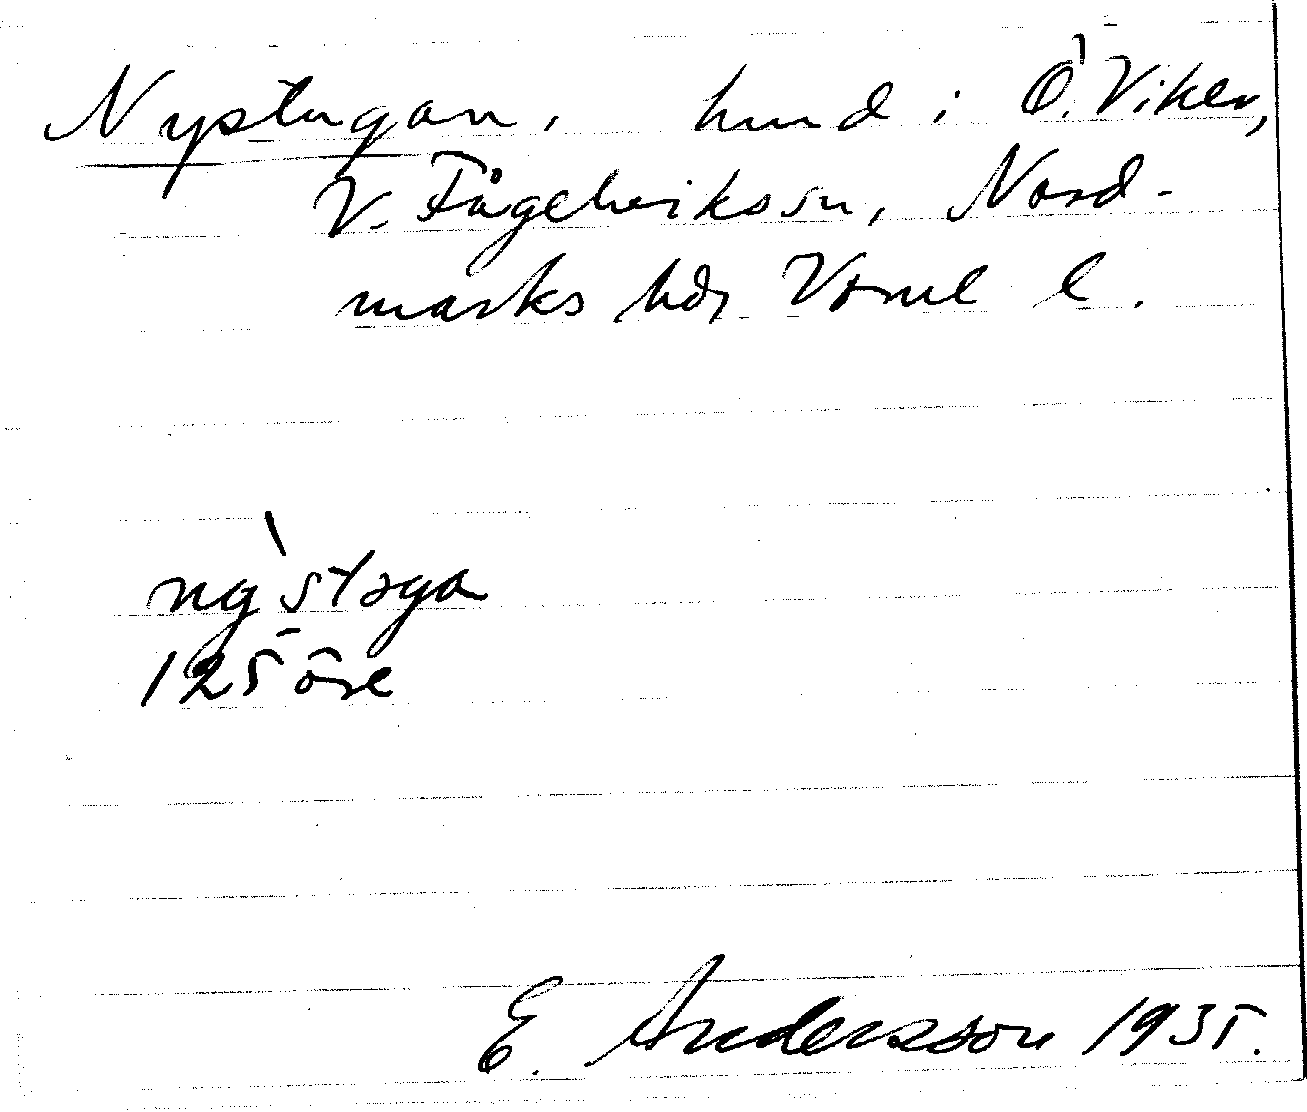 Nystugan, hmd i Ö. Viker,
V. Fågelvikssn, Nord-
marks hd, Vrml l.
ny`stoga
125 öre
E. Andersson 1935.